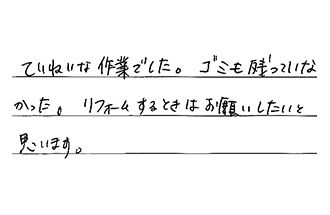 ていねいな作業でした。ゴミも残っていな
かった。リフォームするときはお願いしたいと
思います。